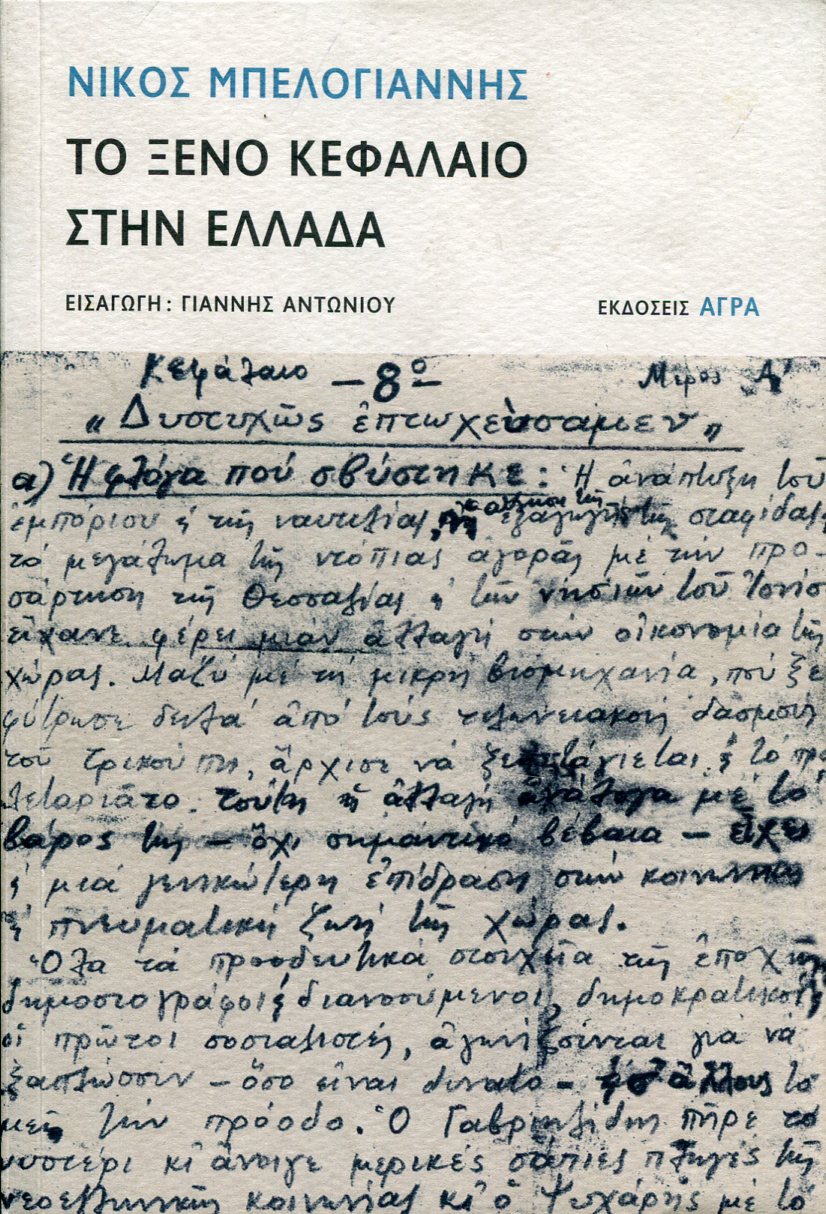 ΝΙΚΟΣ ΜΠΕΛΟΓΙΑΝΝΗΣ
ΤΟ ΞΕΝΟ ΚΕΦΑΛΑΙΟ
ΣΤΗΝ ΕΛΛΑΔΑ
ΕΙΣΑΓΩΓΗ: ΓΙΑΝΝΗΣ ΑΝΤΩΝΙΟΥ
ΕΚΔΟΣΕΙΣ ΑΓΡΑ
Κεφάλαιο –8ο– Μέρος Α'
« Δυστυχῶς ἐπτωχεύσαμεν »
α) Ἡ φλόγα πού σβύστηκε: Ἡ ἀνάπτυξη τοῦ
ἐμπόριου ἡ αὔξηση τῆς ἐξαγωγῆς τῆς σταφίδας,
τό μεγάλωμα τῆς ντόπιας ἀγορᾶς μέ τήν προ-
σάρτηση τῆς Θεσσαλίας τῶν νησιῶν τοῦ Ἰονίο
εἴχανε φέρει μιάν ἀλλαγή στήν οἰκονομία τῆς
χώρας. Μαζύ μέ τή μικρή βιομηχανία, πού ξε
φύτρωσε δειλά ἀπό τούς τελωνειακούς δασμούς
τοῦ Τρικούπη, ἄρχισε νά τό προ
λεταριᾶτο. τούτη ἡ ἀλλαγή ἀνάλογα μέ τό
βάρος της – ὄχι σημαντικό βέβαια – εἶχε
μιά γενικώτερη ἐπίδραση στήν κοινωνική
πνευματική ζωή τῆς χώρας.
Ὅλα τά προοδευτικά στοιχεῖα τῆς ἐποχῆς
δημοσιογράφοι διανοούμενοι, δημοκρατικοί,
οἱ πρῶτοι σοσιαλιστές, ἀγωνίζονται γιά νά
ξαπλώσουν – ὅσο εἶναι δυνατό – τό
τήν πρόοδο. Ὁ Γαβριηλίδης πῆρε τό
νυστέρι κι ἄνοιγε μερικές σάπιες πληγές τῆς
νεοελληνικῆς κοινωνίας κι ὁ Ψυχάρης μέ τό